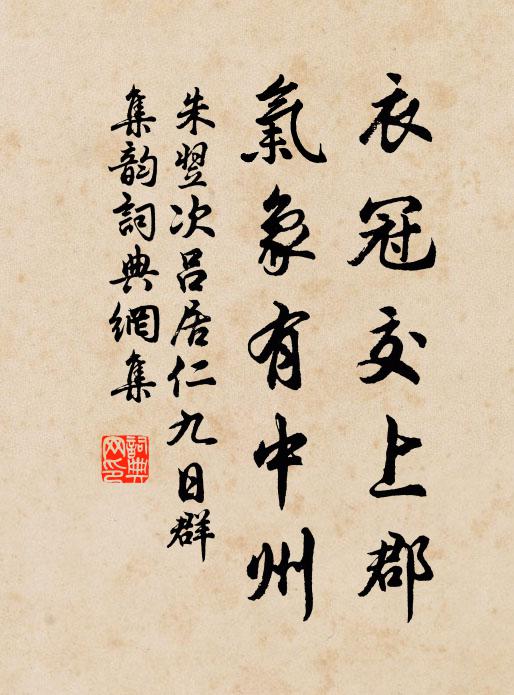 衣冠交上郡
氣象有中州
朱翌次呂居仁九日群
集韵詞典網集
詞典网印